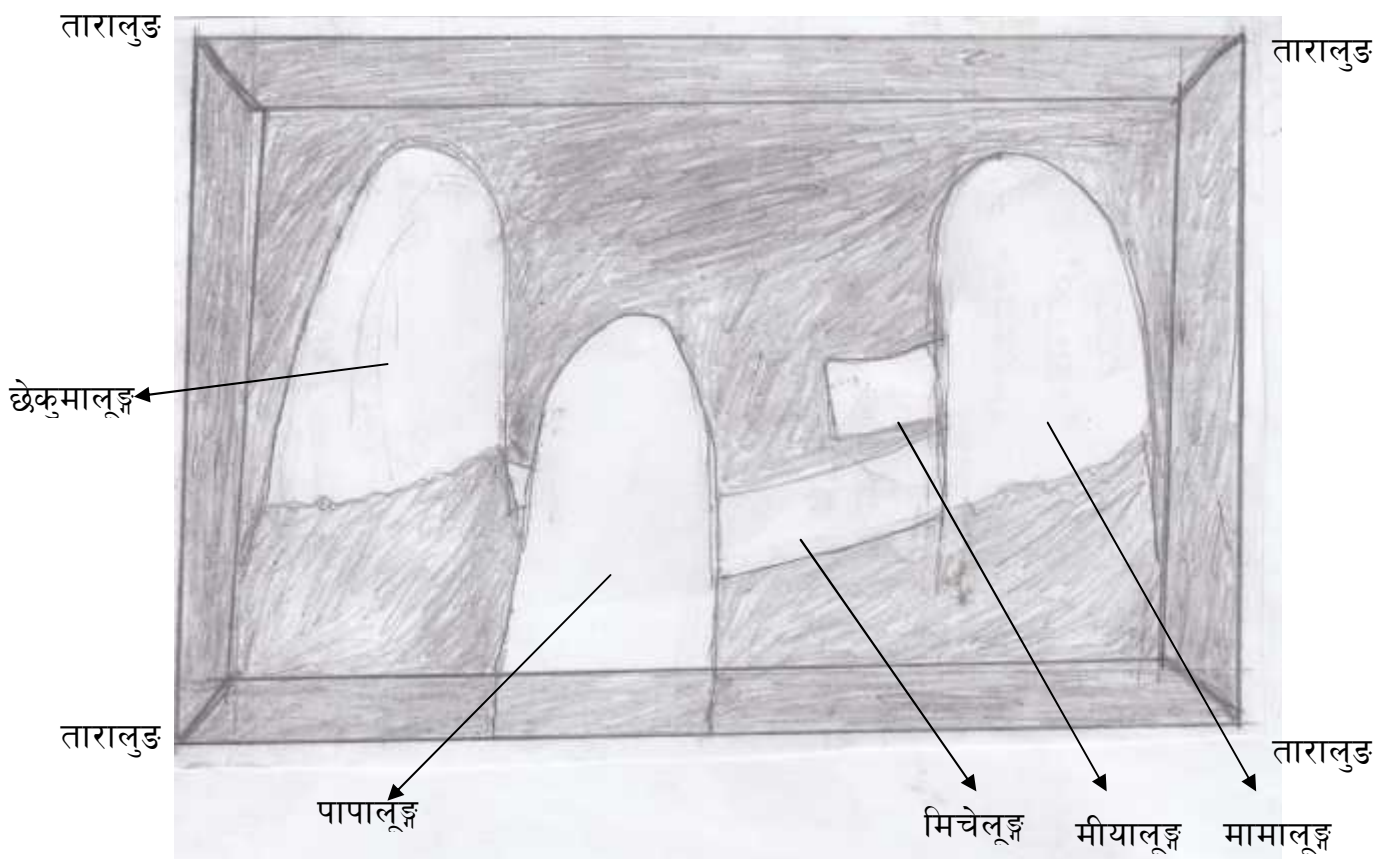 तारालुङ
तारालुङ
छेकुमालूङ्ग
तारालुङ
तारालुङ
पापालूङ्ग
मिचेलूङ्ग
मीयालूङ्ग
मामालूङ्ग